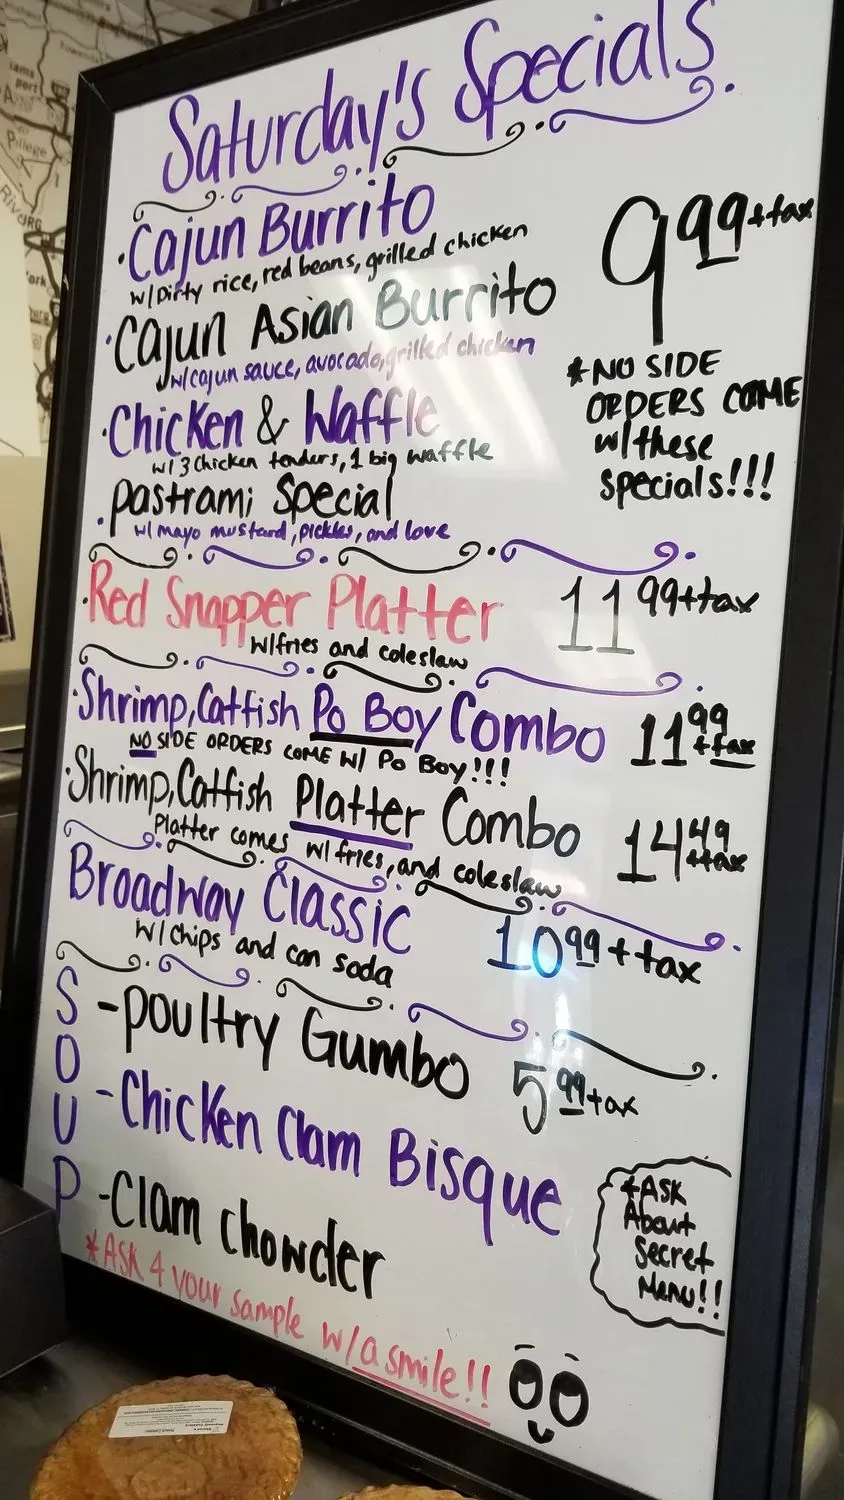 Saturday's Specials
· Cajun Burrito
w/ Dirty rice, red beans, grilled chicken
9 99 + tax
· Cajun Asian Burrito
w/ cajun sauce, avocado, grilled chicken
* NO SIDE
ORDERS COME
w/ these
specials!!!
· Chicken & Waffle
w/ 3 Chicken tenders, 1 big waffle
· Pastrami Special
w/ mayo mustard, pickles, and love
· Red Snapper Platter 11 99 + tax
w/ fries and coleslaw
· Shrimp, Catfish Po Boy Combo 11 99 + tax
NO SIDE ORDERS COME W/ Po Boy!!!
· Shrimp, Catfish Platter Combo 14 49 + tax
Platter comes w/ fries, and coleslaw
Broadway Classic 10 99 + tax
w/ chips and can soda
SOUP
- Poultry Gumbo 5 99 + tax
- Chicken Clam Bisque
- Clam chowder
* ASK
About
Secret
Menu!!
* ASK 4 your sample w/ a smile!!